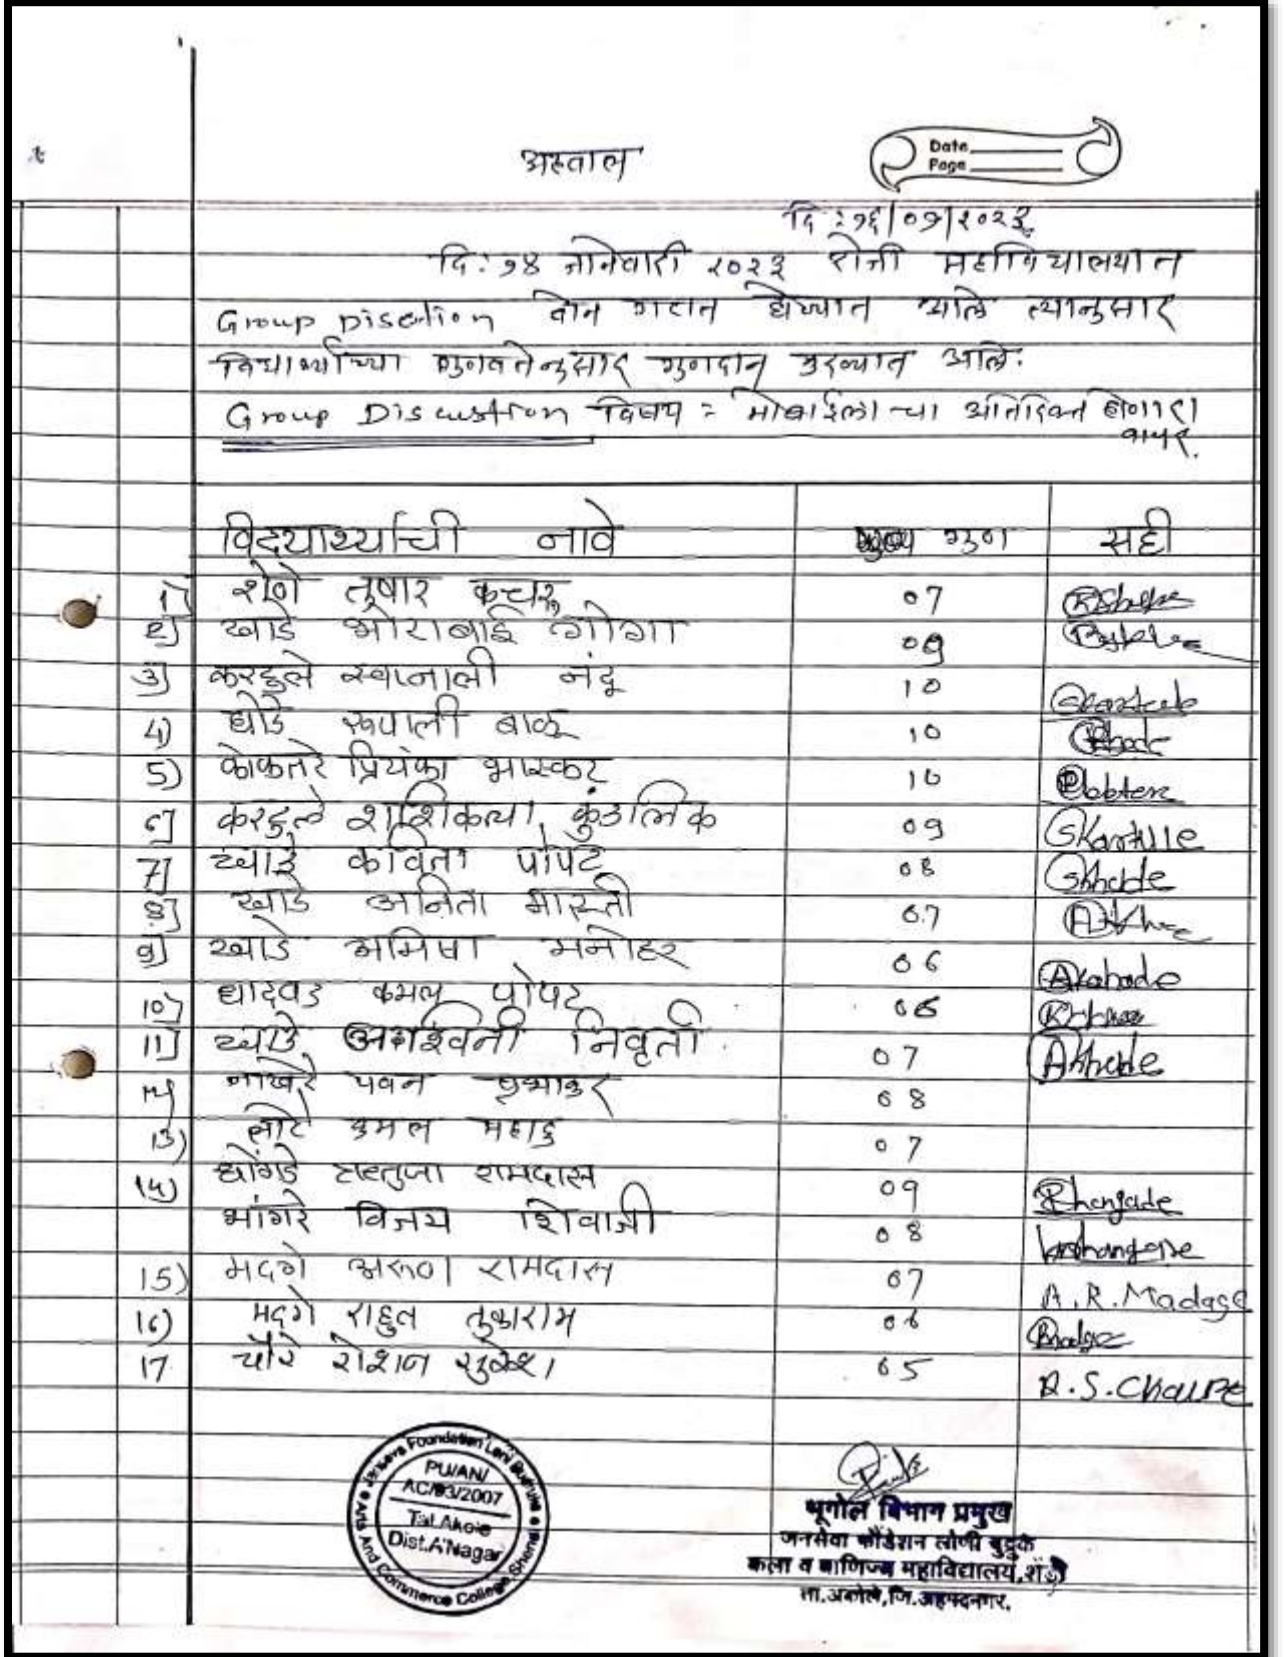 अहवाल
Date
Page
दि : १६/०१/२०२३
दि : १४ जानेवारी २०२३ रोजी महाविद्यालयात
Group Disction दोन गटात घेण्यात आले त्यानुसार
विद्यार्थ्यांच्या गुणवत्तेनुसार गुणदान करण्यात आले.
Group Discusstion विषय = मोबाईलाच्या अतिरिक्त होणारा
वापर.
विद्यार्थ्यांची नावे गुण सही
1) शेणे तुषार कचरू 07
२) खाडे भोराबाई गोगा 09
3) करटुले स्वप्नाली नंदू 10
4) घोडे रूपाली बाळू 10
5) कोकतरे प्रियंका भास्कर 10
6) करटुले शशिकला कुंडलिक 09 SKartule
7) खाडे कविता पोपट 08
8) खाडे अनिता मारुती 07
9) खाडे अमिषा मनोहर 06
10) धादवड कमल पोपट 06
11) खाडे अश्विनी निवृती 07
12) पवन 08
13) लोटे कमल महादु 07
14) रामदास 09
भांगरे विजय शिवाजी 08
15) मदगे अरुणा रामदास 07 A.R.Madage
16) मदगे राहुल तुकाराम 06
17 चौरे रोशन सुरेश 05 R.S.Chaure
Arts And Commerce College, Shendi
Janseva Foundation Loni Budruk
PU/AN/
AC/93/2007
Tal.Akole
Dist.A'Nagar
भूगोल विभाग प्रमुख
जनसेवा फौंडेशन लोणी बुद्रुक
कला व वाणिज्य महाविद्यालय, शेंडी
ता.अकोले,जि.अहमदनगर.